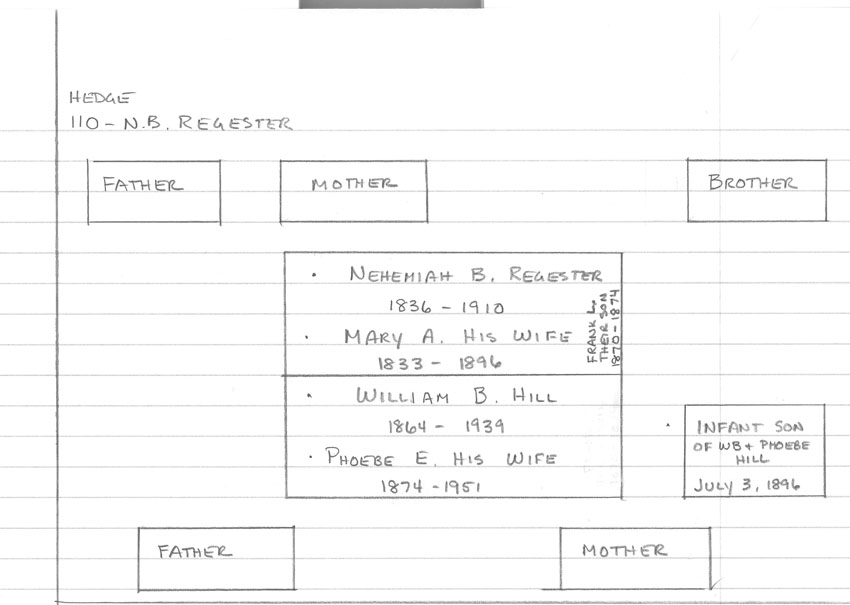 HEDGE
110 - N.B. REGESTER
FATHER
MOTHER
BROTHER
• NEHEMIAH B. REGESTER
1836 - 1910
• MARY A. HIS WIFE
1833 - 1896
FRANK L.
THEIR SON
1870 - 1874
• WILLIAM B. HILL
1864 - 1939
• PHOEBE E. HIS WIFE
1874 - 1951
• INFANT SON
OF WB + PHOEBE
HILL
JULY 3, 1896
FATHER
MOTHER